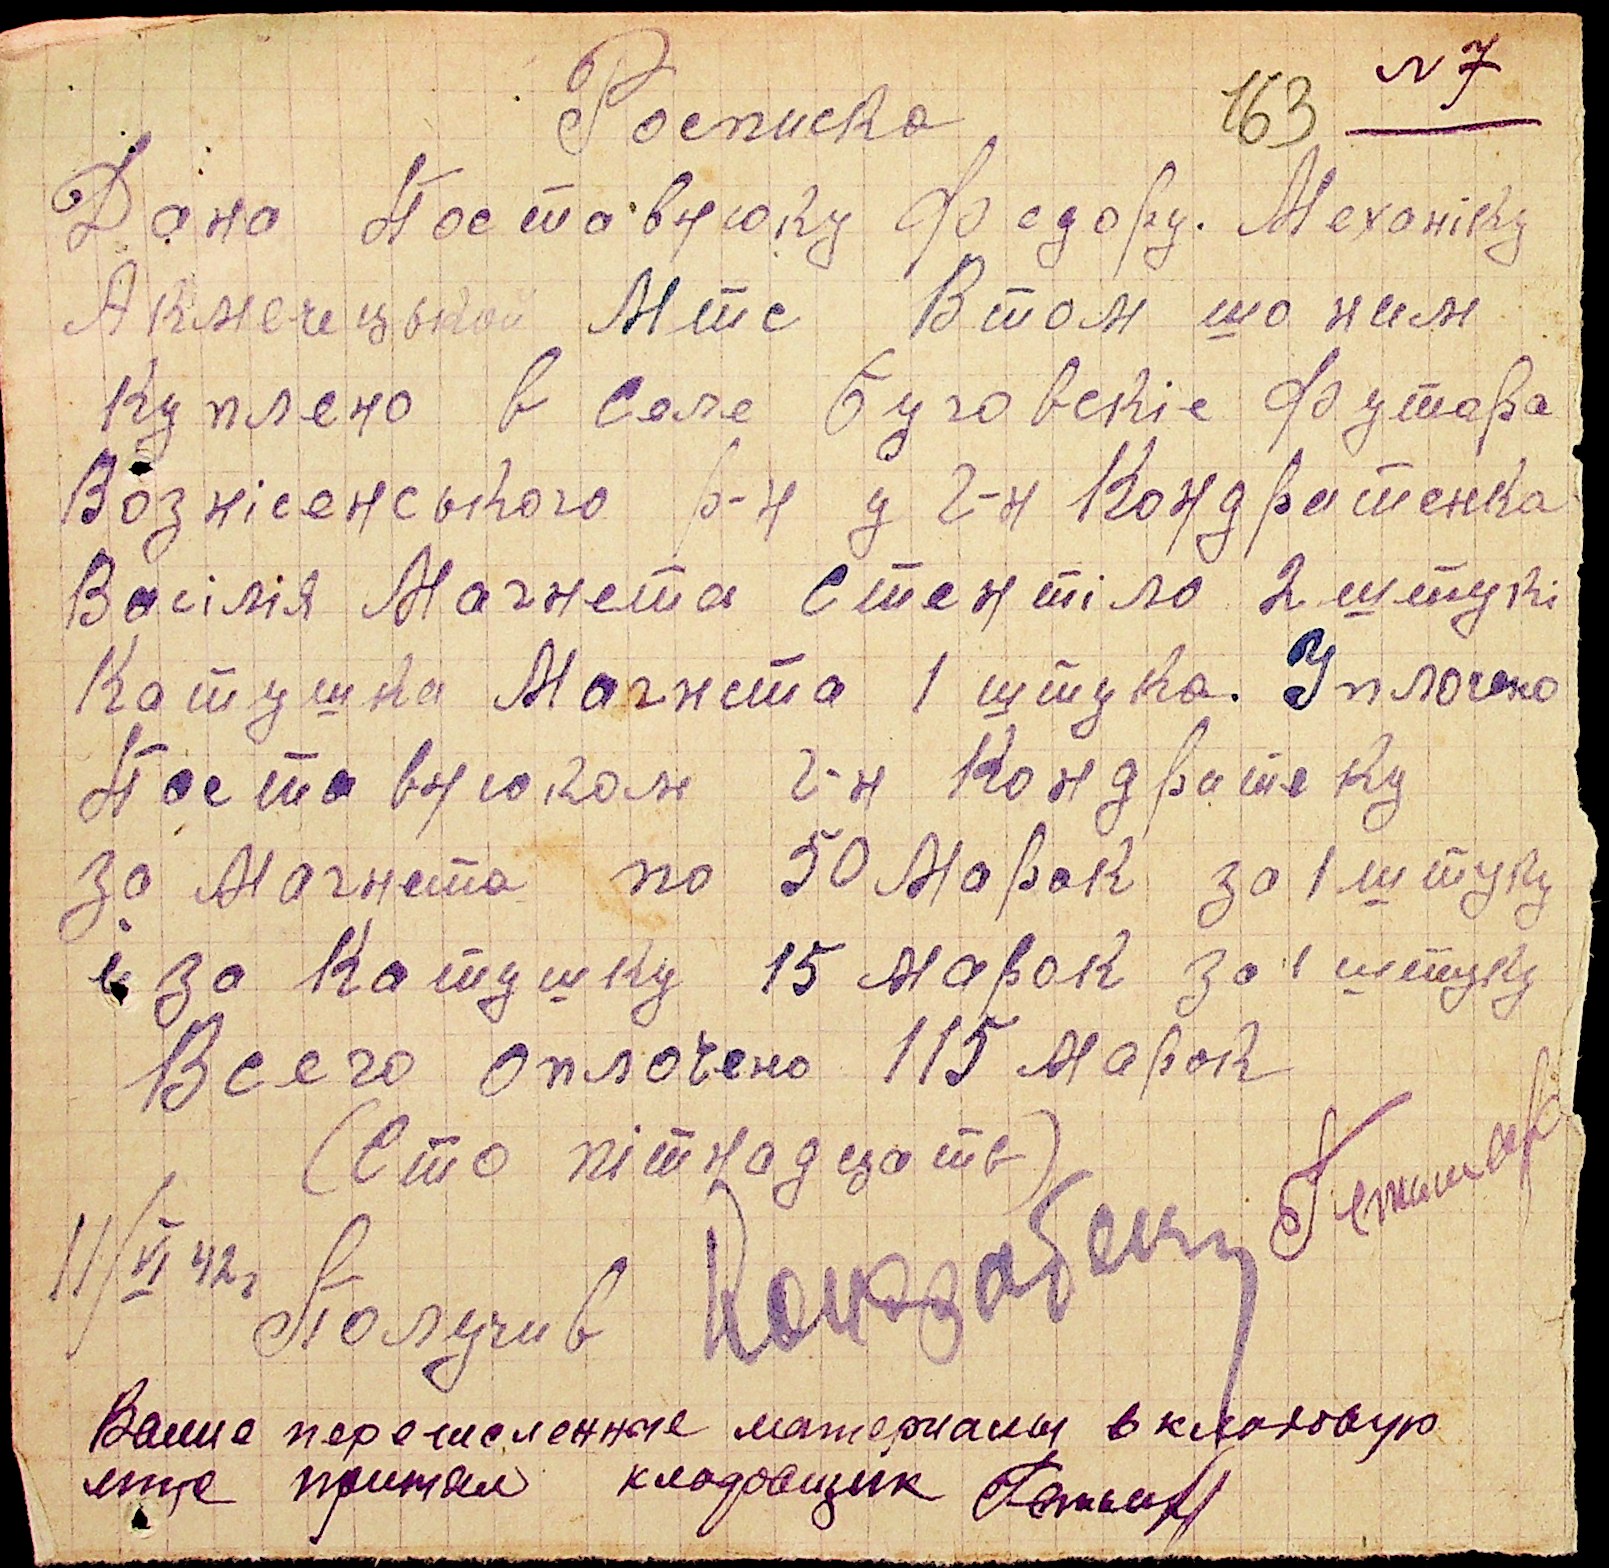 163 N 7
Росписка
Дана Поставнюку Федору. Механіку
Акмечецькой Мтс Втом що ним
куплено в селе Буговскіе Футора
Вознісенського р-н у г-н Кондратенка
Васілія Магнета Стентіло 2 штукі
Катушка Магнета 1 штука. Уплочено
Поставнюком г-н Кондратеку
за Магнета по 50 Марок за 1 штуку
і за Катушку 15 марок за 1 штуку
Всего оплочено 115 марок
(Сто пітнадцать)
11/VI 42г
Получив
Выше перечисленные материалы в кладовую
мтс принял кладовщик